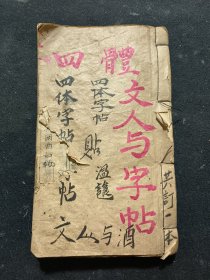 四體文人与字帖
四体字帖
贴
溢
四体字帖
帖
文人与酒
共訂一本